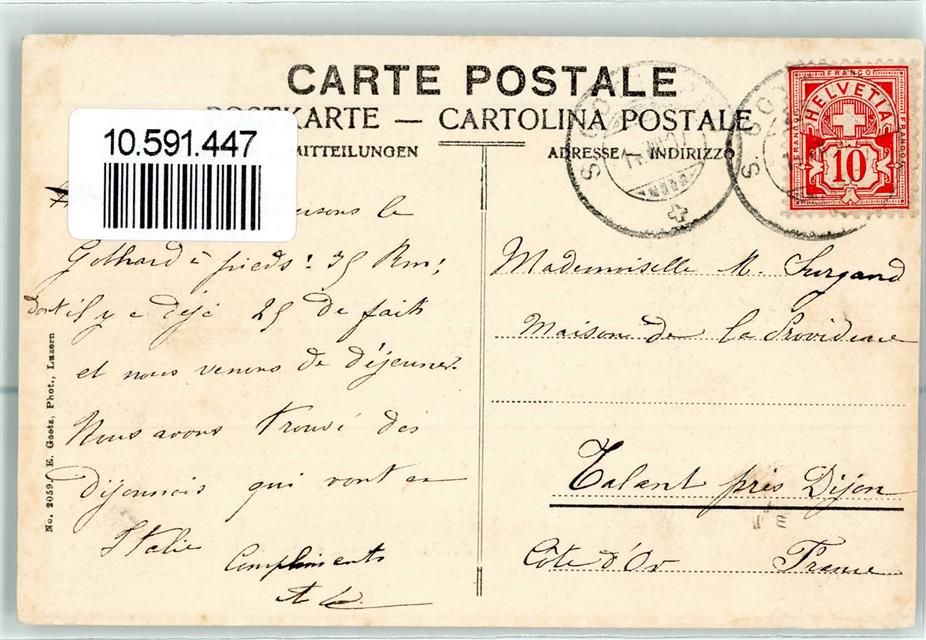 CARTE POSTALE
POSTKARTE — CARTOLINA POSTALE
10.591.447
MITTEILUNGEN
ADRESSE INDIRIZZO
FRANCO
HELVETIA
FRANCO
FRANCO
10
S. GO
S. GO
le
Gothard à pieds! 35 Km;
dont il y a déjà 25 de fait
et nous venons de déjeuner.
Nous avons trouvé des
dijonnais qui vont en
Italie
Compliments
Mademoiselle M. Surgand
Maison de la Providence
Talant près Dijon
Côte d'Or France
No. 2059. E. Goetz, Phot., Luzern